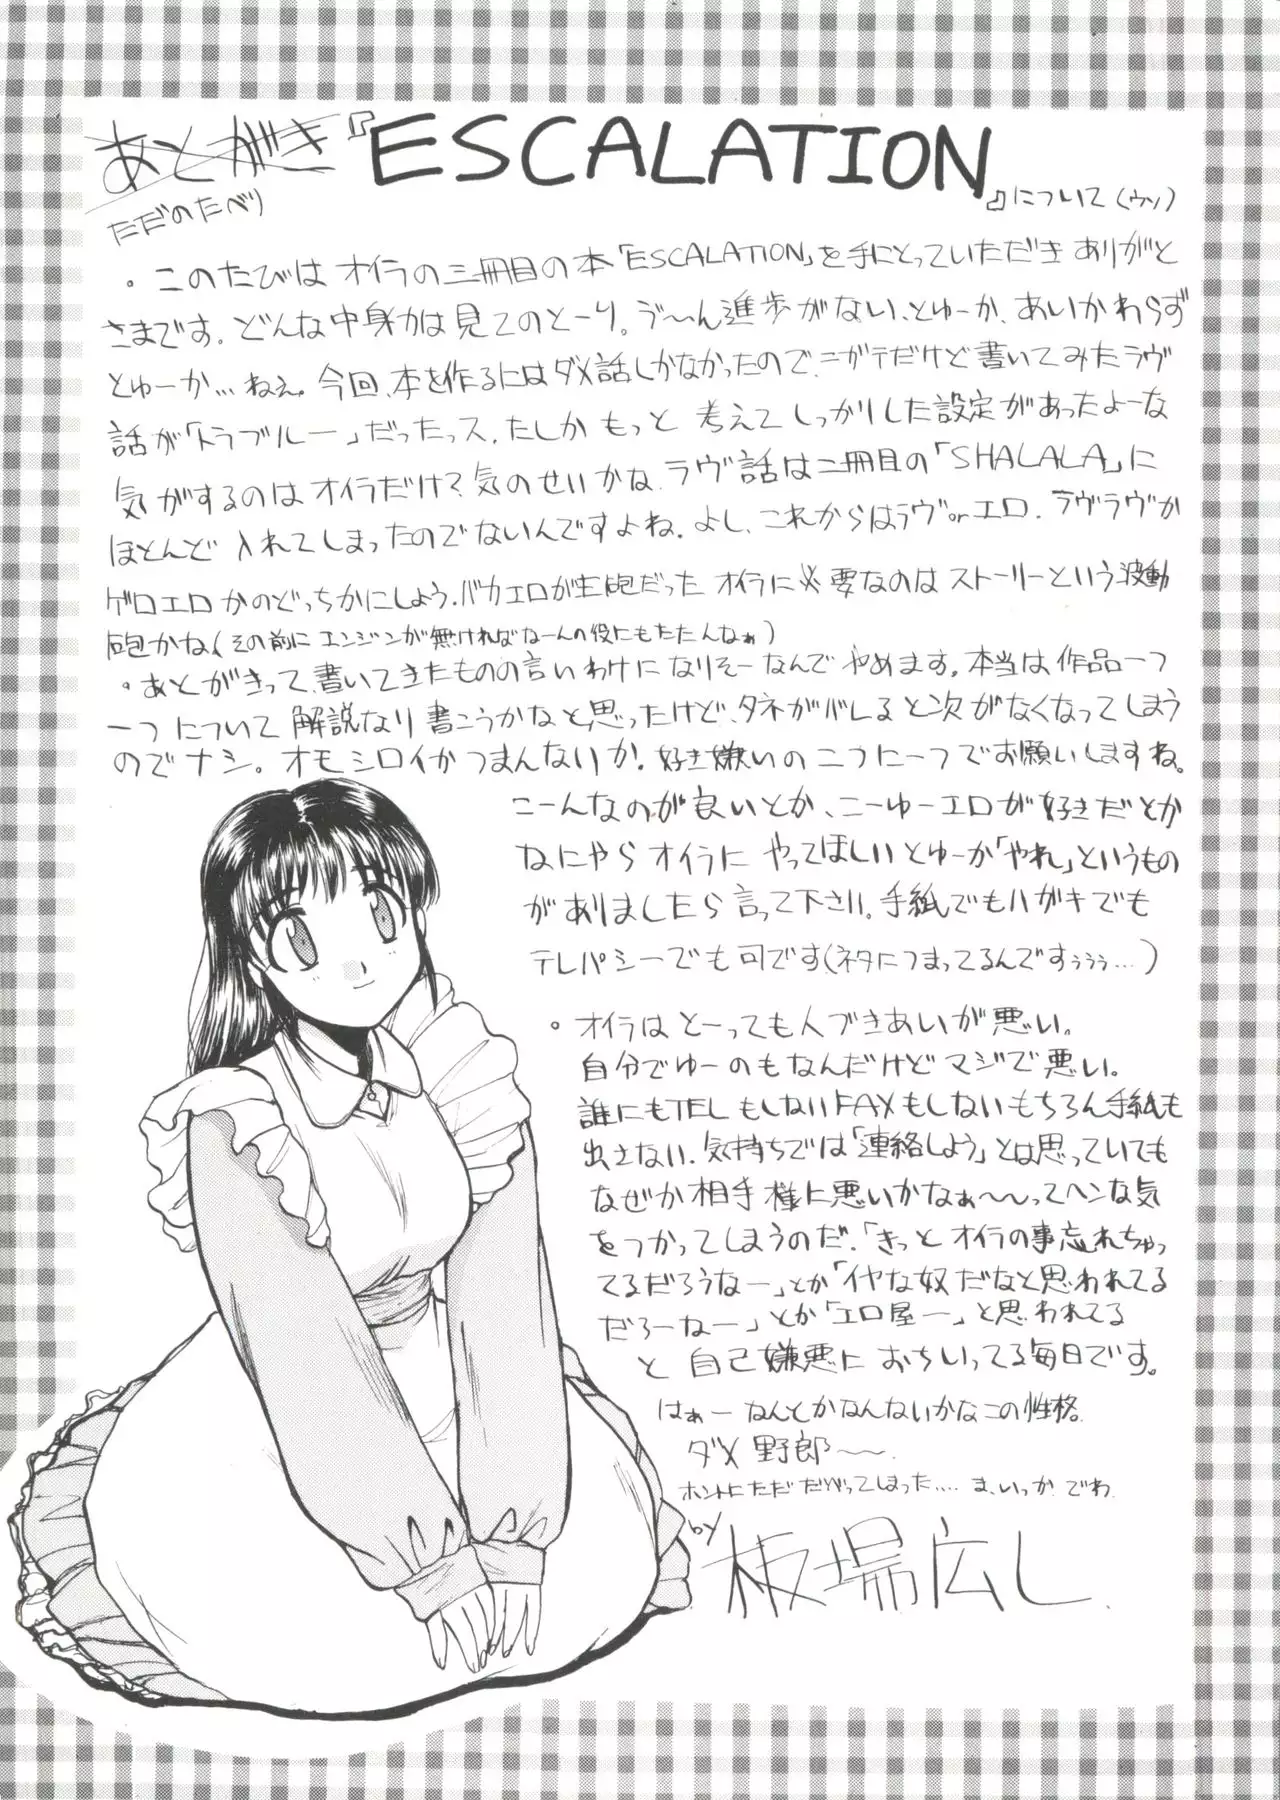 あとがき『ESCALATION』について(ウソ)
ただのだべり
。このたびは オイラの三冊目の本「ESCALATION」を手にとっていただき ありがと
さまです。どんな中身かは見てのとーり。う〜ん進歩がない、とゅーか、あいかわらず
とゅーか…ねぇ。今回、本を作るにはダメ話しかなかったので、ニガテだけど書いてみたラヴ
話が「トラブルー」だったっス。たしか もっと 考えて しっかりした設定があったよーな
気がするのはオイラだけ?気のせいかな、ラヴ話は二冊目の「SHALALA」に
ほとんど 入れてしまったのでないんですよね。よし、これからはラヴorエロ、ラヴラヴか
ゲロエロかのどっちかにしよう。バカエロが主砲だった オイラに必要なのは ストーリーという波動
砲かな(その前に エンジンが無ければなーんの役にもたたんなぁ)
。あとがきって、書いてきたものの言いわけになりそーなんで やめます。本当は作品一つ
一つ について 解説なり書こうかなと思ったけど、タネがバレると次がなくなってしまう
のでナシ。オモシロイかつまんないか!好き嫌いの二つに一つでお願いしますね。
こーんなのが良いとか、こーゆーエロが好きだとか
なにやらオイラに やってほしいとゅーか「やれ」というもの
がありましたら言って下さい。手紙でもハガキでも
テレパシーでも可です(ネタにつまってるんですぅぅぅ…)
。オイラはとーっても人づきあいが悪い。
自分でゆーのもなんだけどマジで悪い。
誰にもTELもしないFAXもしないもちろん手紙も
出さない。気持ちでは「連絡しよう」とは思っていても
なぜか相手様に悪いかなぁ〜〜ってヘンな気
をつかってしまうのだ。「きっとオイラの事忘れちゃっ
てるだろうなー」とか「イヤな奴だなと思われてる
だろーなー」とか「エロ屋ー」と思われてる
と 自己嫌悪に おちいってる毎日です。
はぁー なんとかなんないかなこの性格
ダメ野郎〜〜
ホントにただ だべってしまった…. ま、いっか でわ
by 板場広し